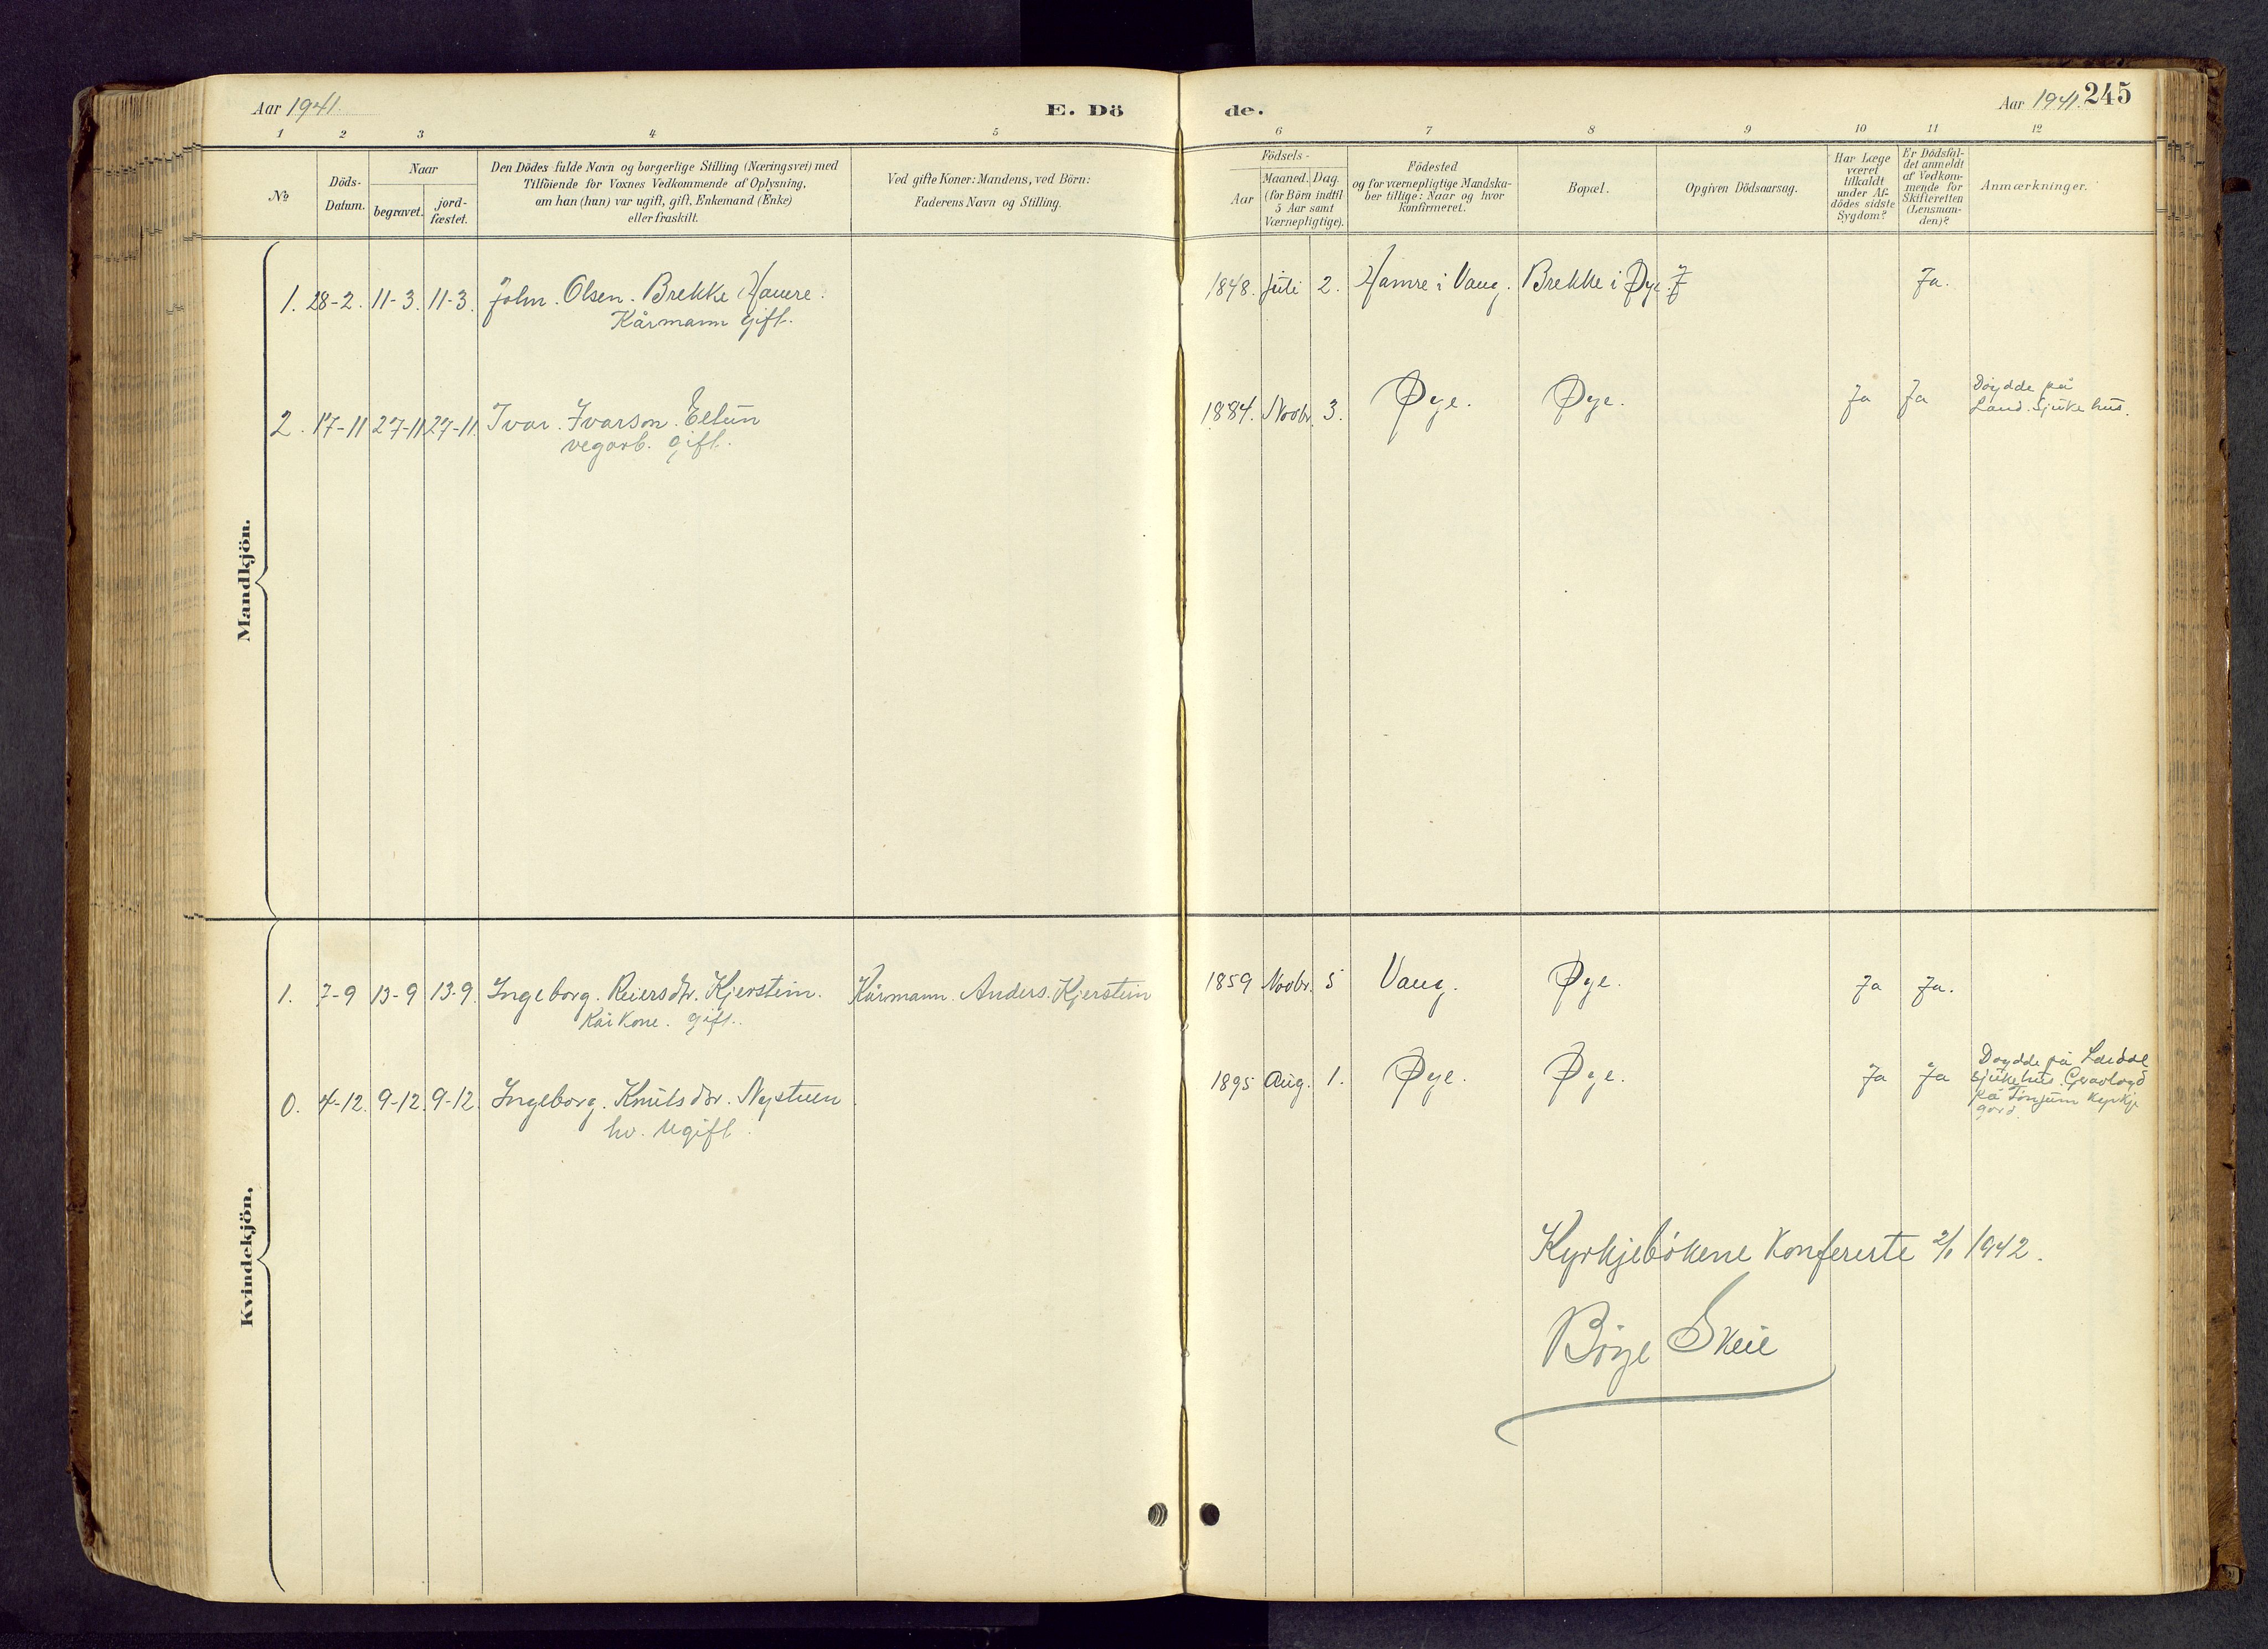 Aar 1941. E. Dö de. Aar 1941. 245
1 2 3 4 5 6 7 8 9 10 11 12
No
Döds-
Datum.
Naar
begravet.
jord-
fæstet.
Den Dödes fulde Navn og borgerlige Stilling (Næringsvei) med
Tilföiende for Voxnes Vedkommende af Oplysning,
om han (hun) var ugift, gift, Enkemand (Enke)
eller fraskilt.
Ved gifte Koner: Mandens, ved Börn:
Faderens Navn og Stilling.
Födsels-
Aar
Maaned. Dag.
(for Börn indtil
5 Aar samt
Værnepligtige).
Födested
og for værnepligtige Mandska-
ber tillige: Naar og hvor
konfirmeret.
Bopæl.
Opgiven Dödsaarsag.
Har Læge
været
tilkaldt
under Af-
dödes sidste
Sygdom?
Er Dödsfal-
det anmeldt
af Vedkom-
mende for
Skifteretten
(Lensman-
den)?
Anmærkninger.
Mandkjön.
1. 28-2. 11-3. 11-3. John. Olsen. Brekke Hamre. 1848. Juli 2. Hamre i Vang. Brekke i Øye. Ja.
Kårmann gift.
2. 17-11 27-11 27-11. Ivar. Ivarson. Eltun 1884. Novbr. 3. Øye. Øye. Ja Ja Døydde på
Land. Sjukehus.
vegarb. gift.
Kvindekjön.
1. 7-9 13-9 13-9. Ingeborg. Reiersdtr. Kjerstein. Kårmann. Anders. Kjerstein 1859 Novbr. 5 Vang. Øye. Ja Ja.
Kårkone. gift.
0. 4-12. 9-12. 9-12. Ingeborg. Knutsdtr. Nystuen 1895 Aug. 1. Øye. Øye. Ja Ja Døydde på Lærdal
sjukehus. Gravlagd
på Tønjum Kyrkje
gard.
hv. Ugift.
Kyrkjebøkene Konfererte 2/1 1942.
Børge Skeie